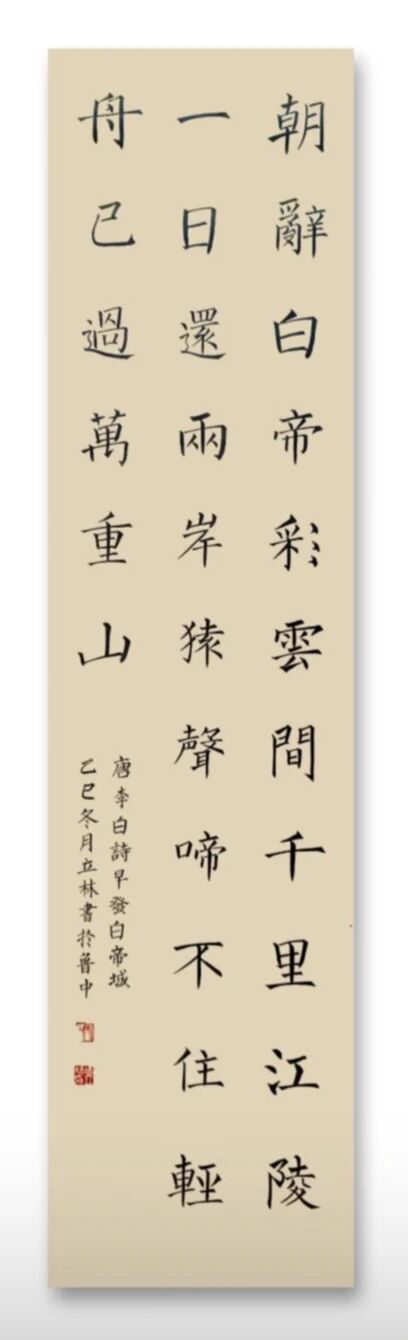 朝辭白帝彩雲間千里江陵
一日還兩岸猿聲啼不住輕
舟已過萬重山
唐李白詩早發白帝城
乙巳冬月立林書於魯中